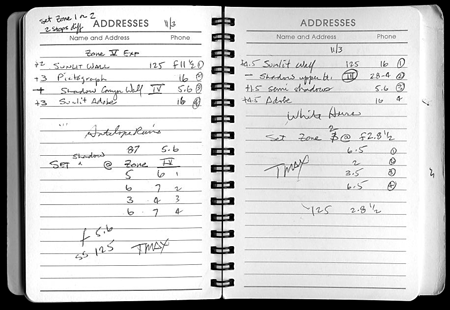 Set Zone 1 or 2
2 stops diff
ADDRESSES
11/3
Name and Address Phone
Zone V Exp
+2 Sunlit Wall 125 f11 ½ 1
+3 Pictograph 16 2
+ Shadow Canyon Wall IV 5.6 3
+3 Sunlit Adobe 16 4
Antelope Ruins
Shadow 87 5.6
SET " @ Zone IV
5 6 1
6 7 2
3 4 3
6 7 4
f 5.6
SS 125 TMAX
ADDRESSES
11/3
Name and Address Phone
+1.5 Sunlit Wall 125 16 1
- Shadow upper III 2
+1.5 semi shadows 5.6 3
+1.5 Adobe 16 4
White House
Set Zone 3 @ f 2.8 ½
6.5 1
2 2
TMAX 3.5 3
6.5 4
125 2.8 ½